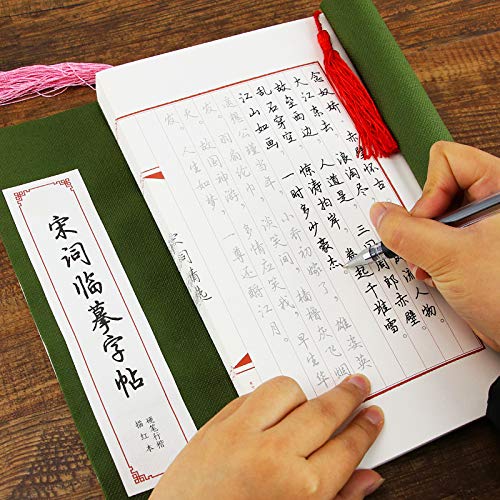 宋词临摹字帖
硬笔行楷
描红本
念奴娇 赤壁怀古
大江东去，浪淘尽，流人物。
故垒西边，人道是，三国周郎赤壁。
乱石穿空，惊涛拍岸，卷起千堆雪。
江山如画，一时多少豪杰。
遥想公瑾当年，小乔初嫁了，雄姿英
发。羽扇纶巾，谈笑间，樯橹灰飞烟
灭。故国神游，多情应笑我，早生华
发。人生如梦，一尊还酹江月。
宋词精选